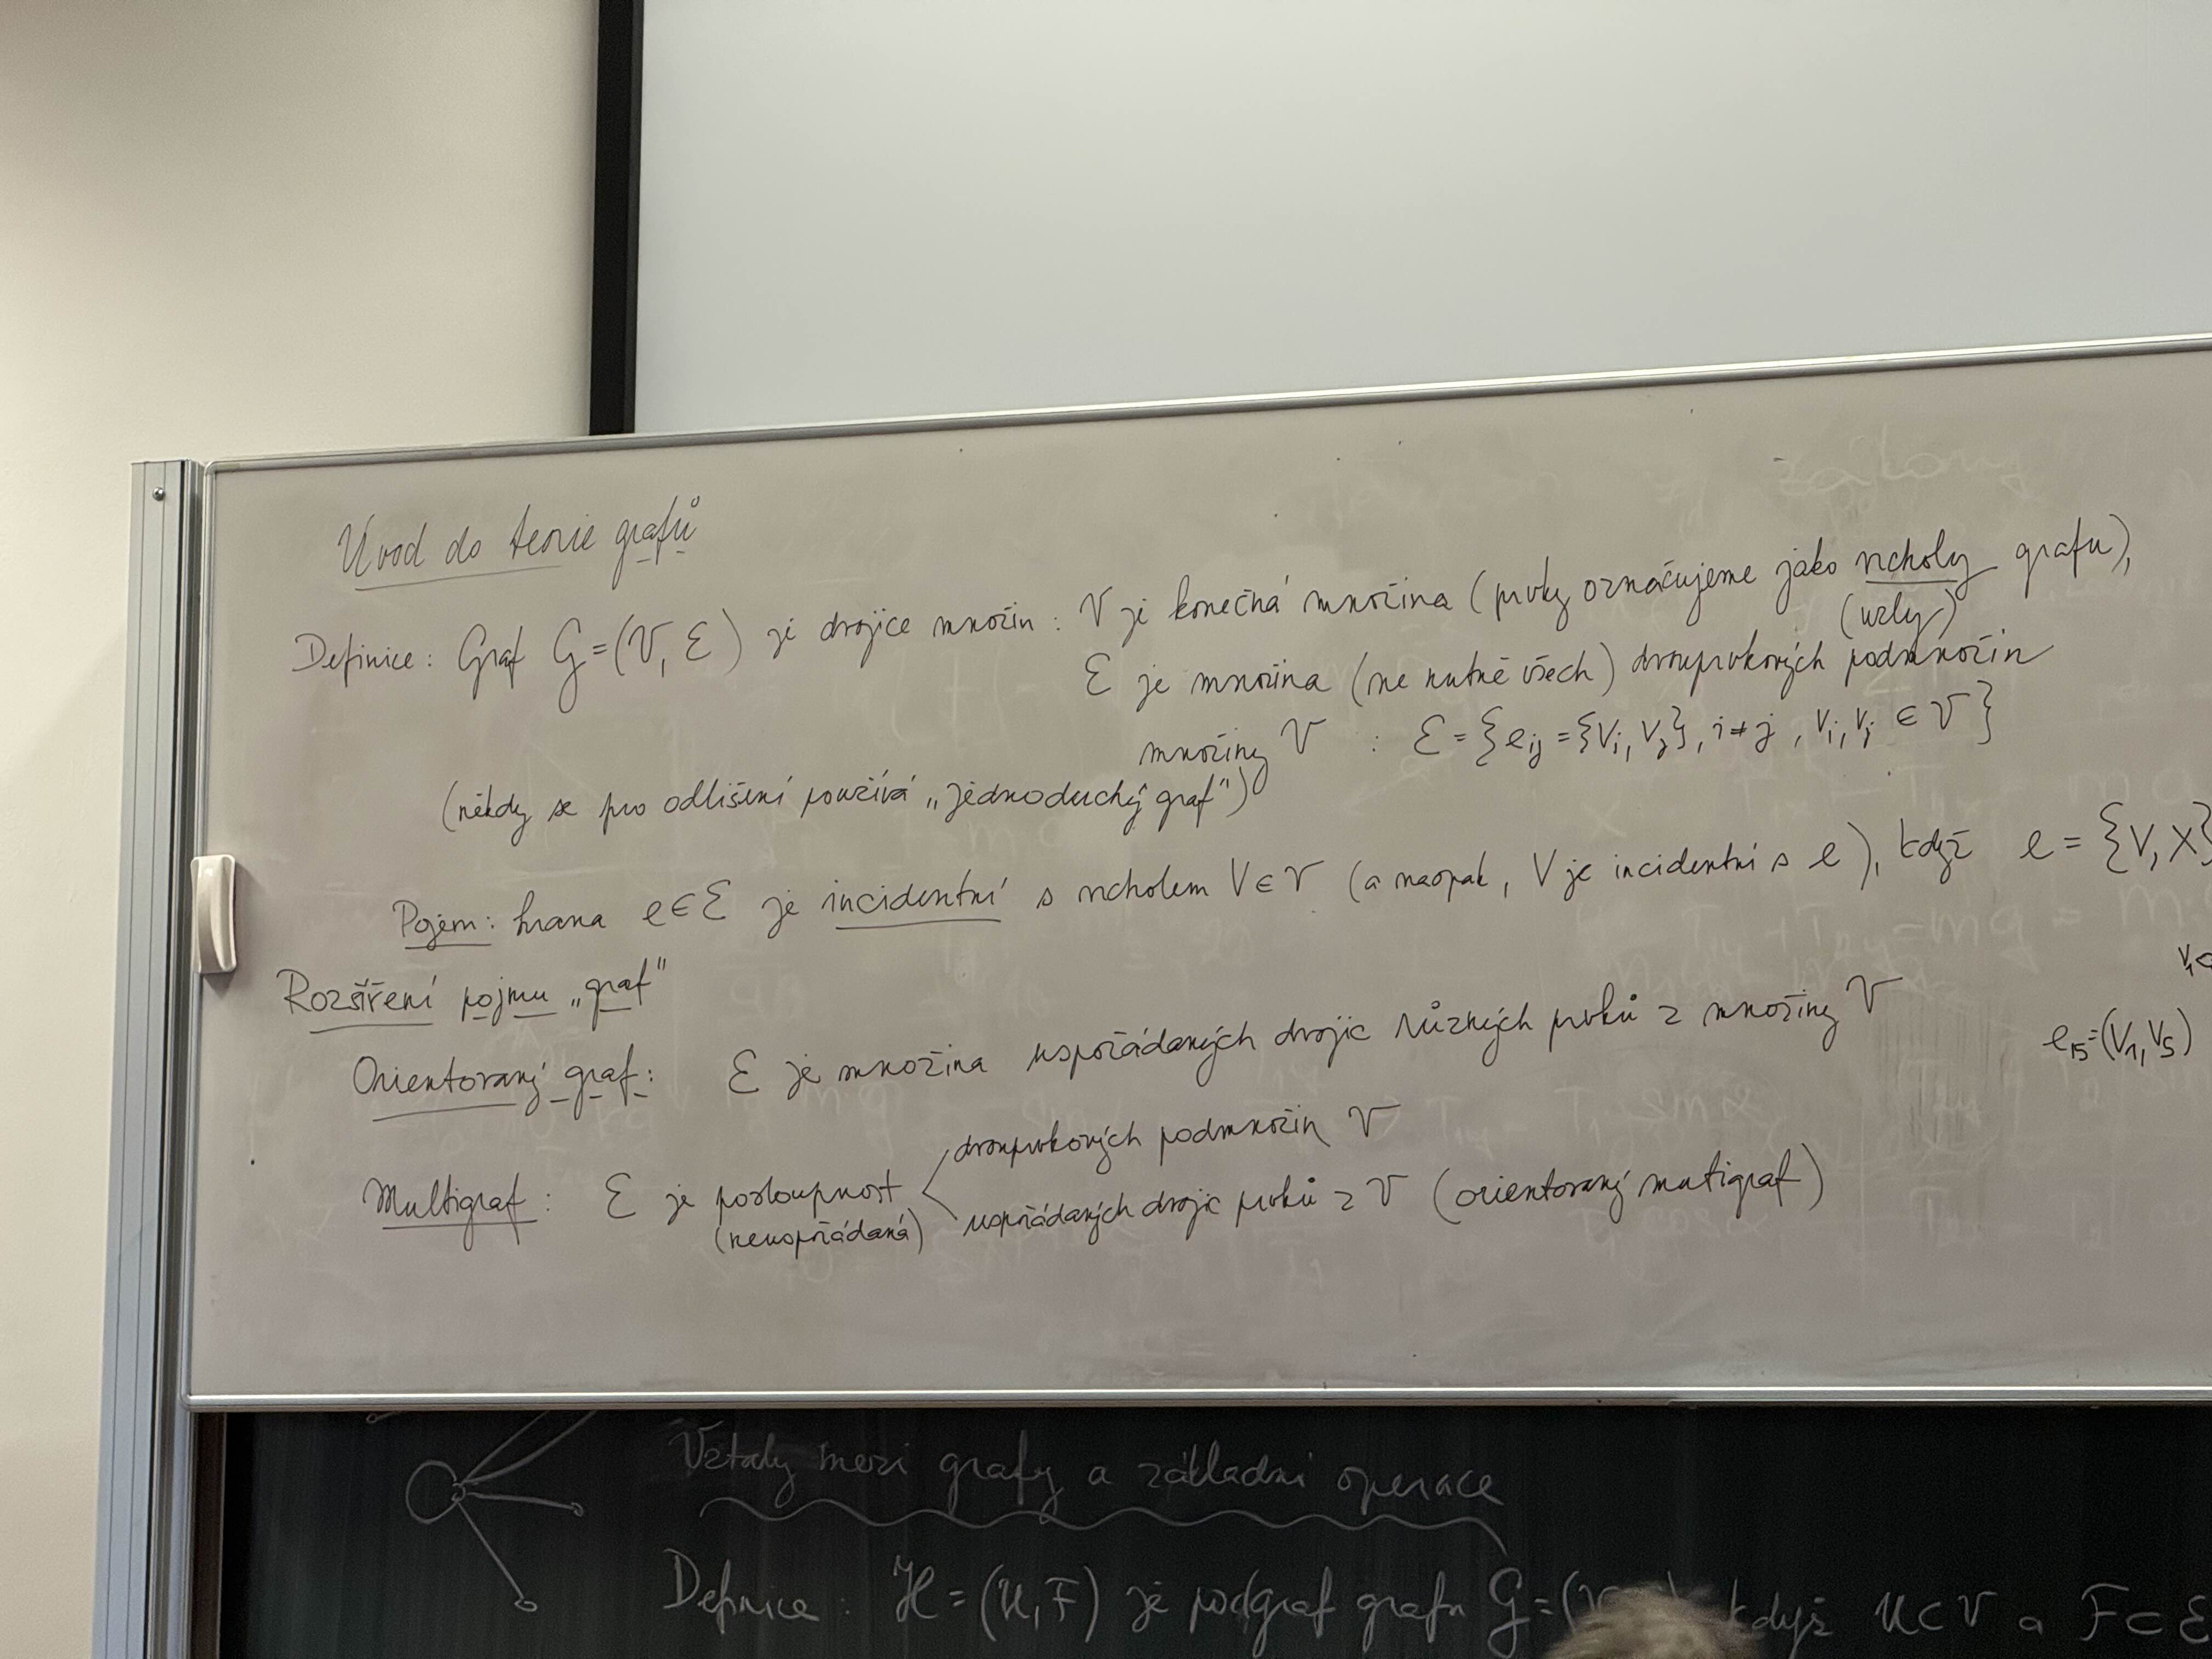 Úvod do teorie grafů
Definice: Graf G=(V, E) je dvojice množin : V je konečná množina (prvky označujeme jako vrcholy grafu),
(uzly)
E je množina (ne nutně všech) dvouprvkových podmnožin
množiny V : E = {e_ij = {V_i, V_j}, i ≠ j, V_i, V_j ∈ V}
(někdy se pro odlišení používá „jednoduchý graf")
Pojem: hrana e ∈ E je incidentní s vrcholem V ∈ V (a naopak, V je incidentní s e), když e = {V, X}
Rozšíření pojmu „graf"
Orientovaný graf: E je množina uspořádaných dvojic různých prvků z množiny V
e_15 = (V_1, V_5)
Multigraf: E je posloupnost dvouprvkových podmnožin V
(neuspořádaná) uspořádaných dvojic prvků z V (orientovaný mutigraf)
Vztahy mezi grafy a základní operace
Definice: H = (U, F) je podgraf grafu G = ( když U ⊂ V a F ⊂ E